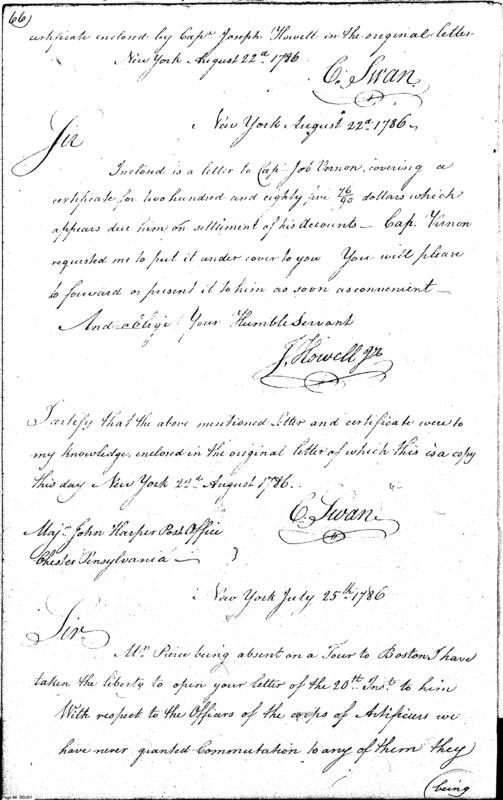 66)
certificate enclosed by Capt. Joseph Howell in the original letter
New York August 22d. 1786
C. Swan.
New York August 22d. 1786.
Sir
Inclosed is a letter to Cap. Job Vernon, covering a
certificate for two hundred and eighty five 76/90 dollars which
appears due him on settlement of his Accounts — Cap. Vernon
requested me to put it under cover to you You will please
to forward or present it to him as soon as convenient —
And oblige Your Humble Servant
J. Howell Jr.
I certify that the above mentioned letter and certificate were to
my knowledge, enclosed in the original letter of which this is a copy
this day New York 22d. August 1786.
C. Swan.
Majr. John Harper Post Office
Chester Pensylvania —
}
New York July 25th. 1786
Sir.
Mr. Pierce being absent on a Tour to Boston, I have
taken the liberty to open your letter of the 20th. Inst. to him
With respect to the Officers of the corps of Artificers we
have never granted Commutation to any of them they
being